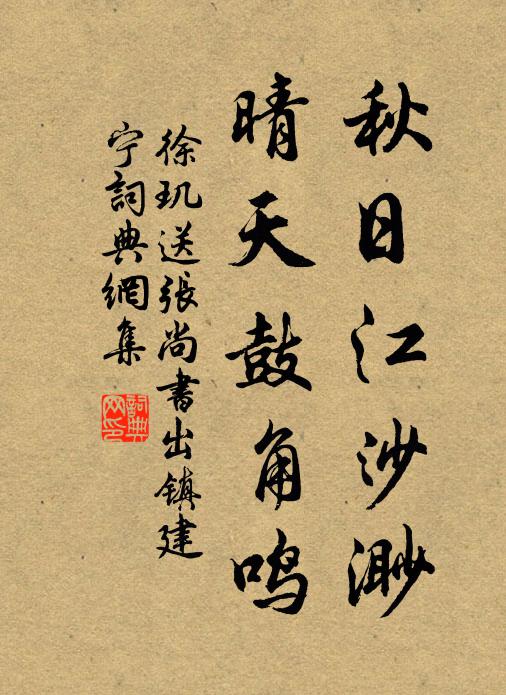 秋日江沙渺
晴天鼓角鸣
徐玑送張尚書出镇建
宁詞典網集
詞典网印